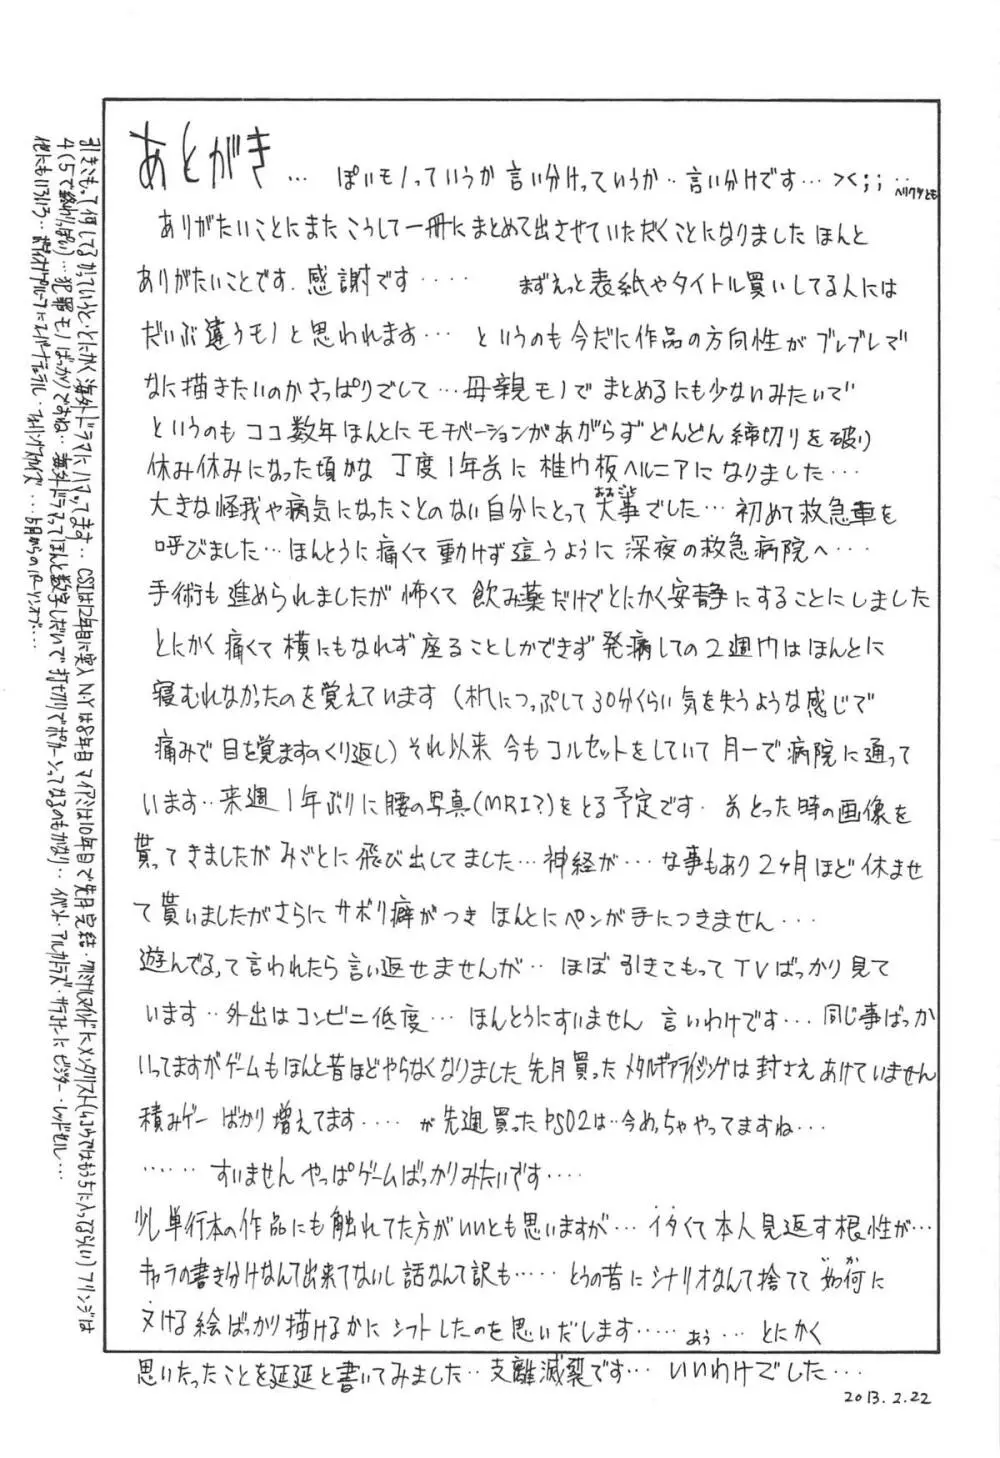 あとがき… ぽいモノっていうか 言い分けっていうか‥言い分けです… ><;;‥
ヘリクツとも
ありがたいことにまた こうして一冊にまとめて出させていただくことになりました ほんと
ありがたいことです. 感謝です‥‥ まずえっと表紙やタイトル買いしてる人には
だいぶ違うモノと思われます… というのも今だに作品の方向性が ブレブレで
なに描きたいのかさっぱりでして…母親モノで まとめるにも少ないみたいで
というのも ココ数年ほんとにモチベーションがあがらず どんどん締切りを破り
休み休みになった頃かな 丁度1年前に 椎間板ヘルニアに なりました…
大きな怪我や病気になったことのない自分にとって大事でした… 初めて救急車を
呼びました…ほんとうに痛くて動けず這うように深夜の救急病院へ…
手術も進められましたが怖くて 飲み薬だけでとにかく安静にすることにしました
とにかく痛くて横にもなれず座ることしかできず 発病しての2週間はほんとに
寝むれなかったのを覚えています (机につっぷして30分くらい気を失うような感じで
痛みで目を覚ますのくり返し) それ以来 今もコルセットをしていて 月一で病院に通って
います‥来週1年ぶりに腰の写真(MRI?)をとる予定です. まえとった時の画像を
貰ってきましたが みごとに飛び出してました…神経が… な事もあり2ヶ月ほど休ませ
て貰いましたがさらに サボリ癖がつき ほんとにペンが手につきません…
遊んでるって言われたら言い返せませんが‥ ほぼ引きこもってTVばっかり見て
います‥外出はコンビニ低度… ほんとうにすいません 言いわけです… 同じ事ばっか
いってますがゲームもほんと昔ほどやらなくなりました 先月買ったメタルギアライジングは封さえあけていません
積みゲー ばかり増えてます‥‥ が先週買ったPSO2は‥今めっちゃやってますね…
…… すいません やっぱゲームばっかりみたいです‥‥
少し単行本の作品にも触れてた方がいいとも思いますが… イタくて本人見返す根性が…
キャラの書き分けなんて出来てないし 話なんて訳も…… とうの昔にシナリオなんて捨てて如何に
ヌける絵ばっかり描けるかに シフトしたのを思いだします…… ぁぅ… とにかく
思いたったことを延延と書いてみました‥支離滅裂です… いいわけでした…
2013.2.22
引きこもって何してるかっていうと・とにかく海外ドラマにハマってます‥ CSIは12年目に突入 N.Yは8年目 マイアミは10年目で先月完結・クリミナルマインド・メンタリスト フリンジは
4(5で終わりっぽい)…犯罪モノばっかりですね‥ 海外ドラマってほんと数字しだいで 打ち切りでポカーンってなるのもかなり‥ イベント・アルカトラズ・サラコナーにビジター・レッドセル…
他にもいろいろ… スーパーナチュラル・フォーリングスカイズ…